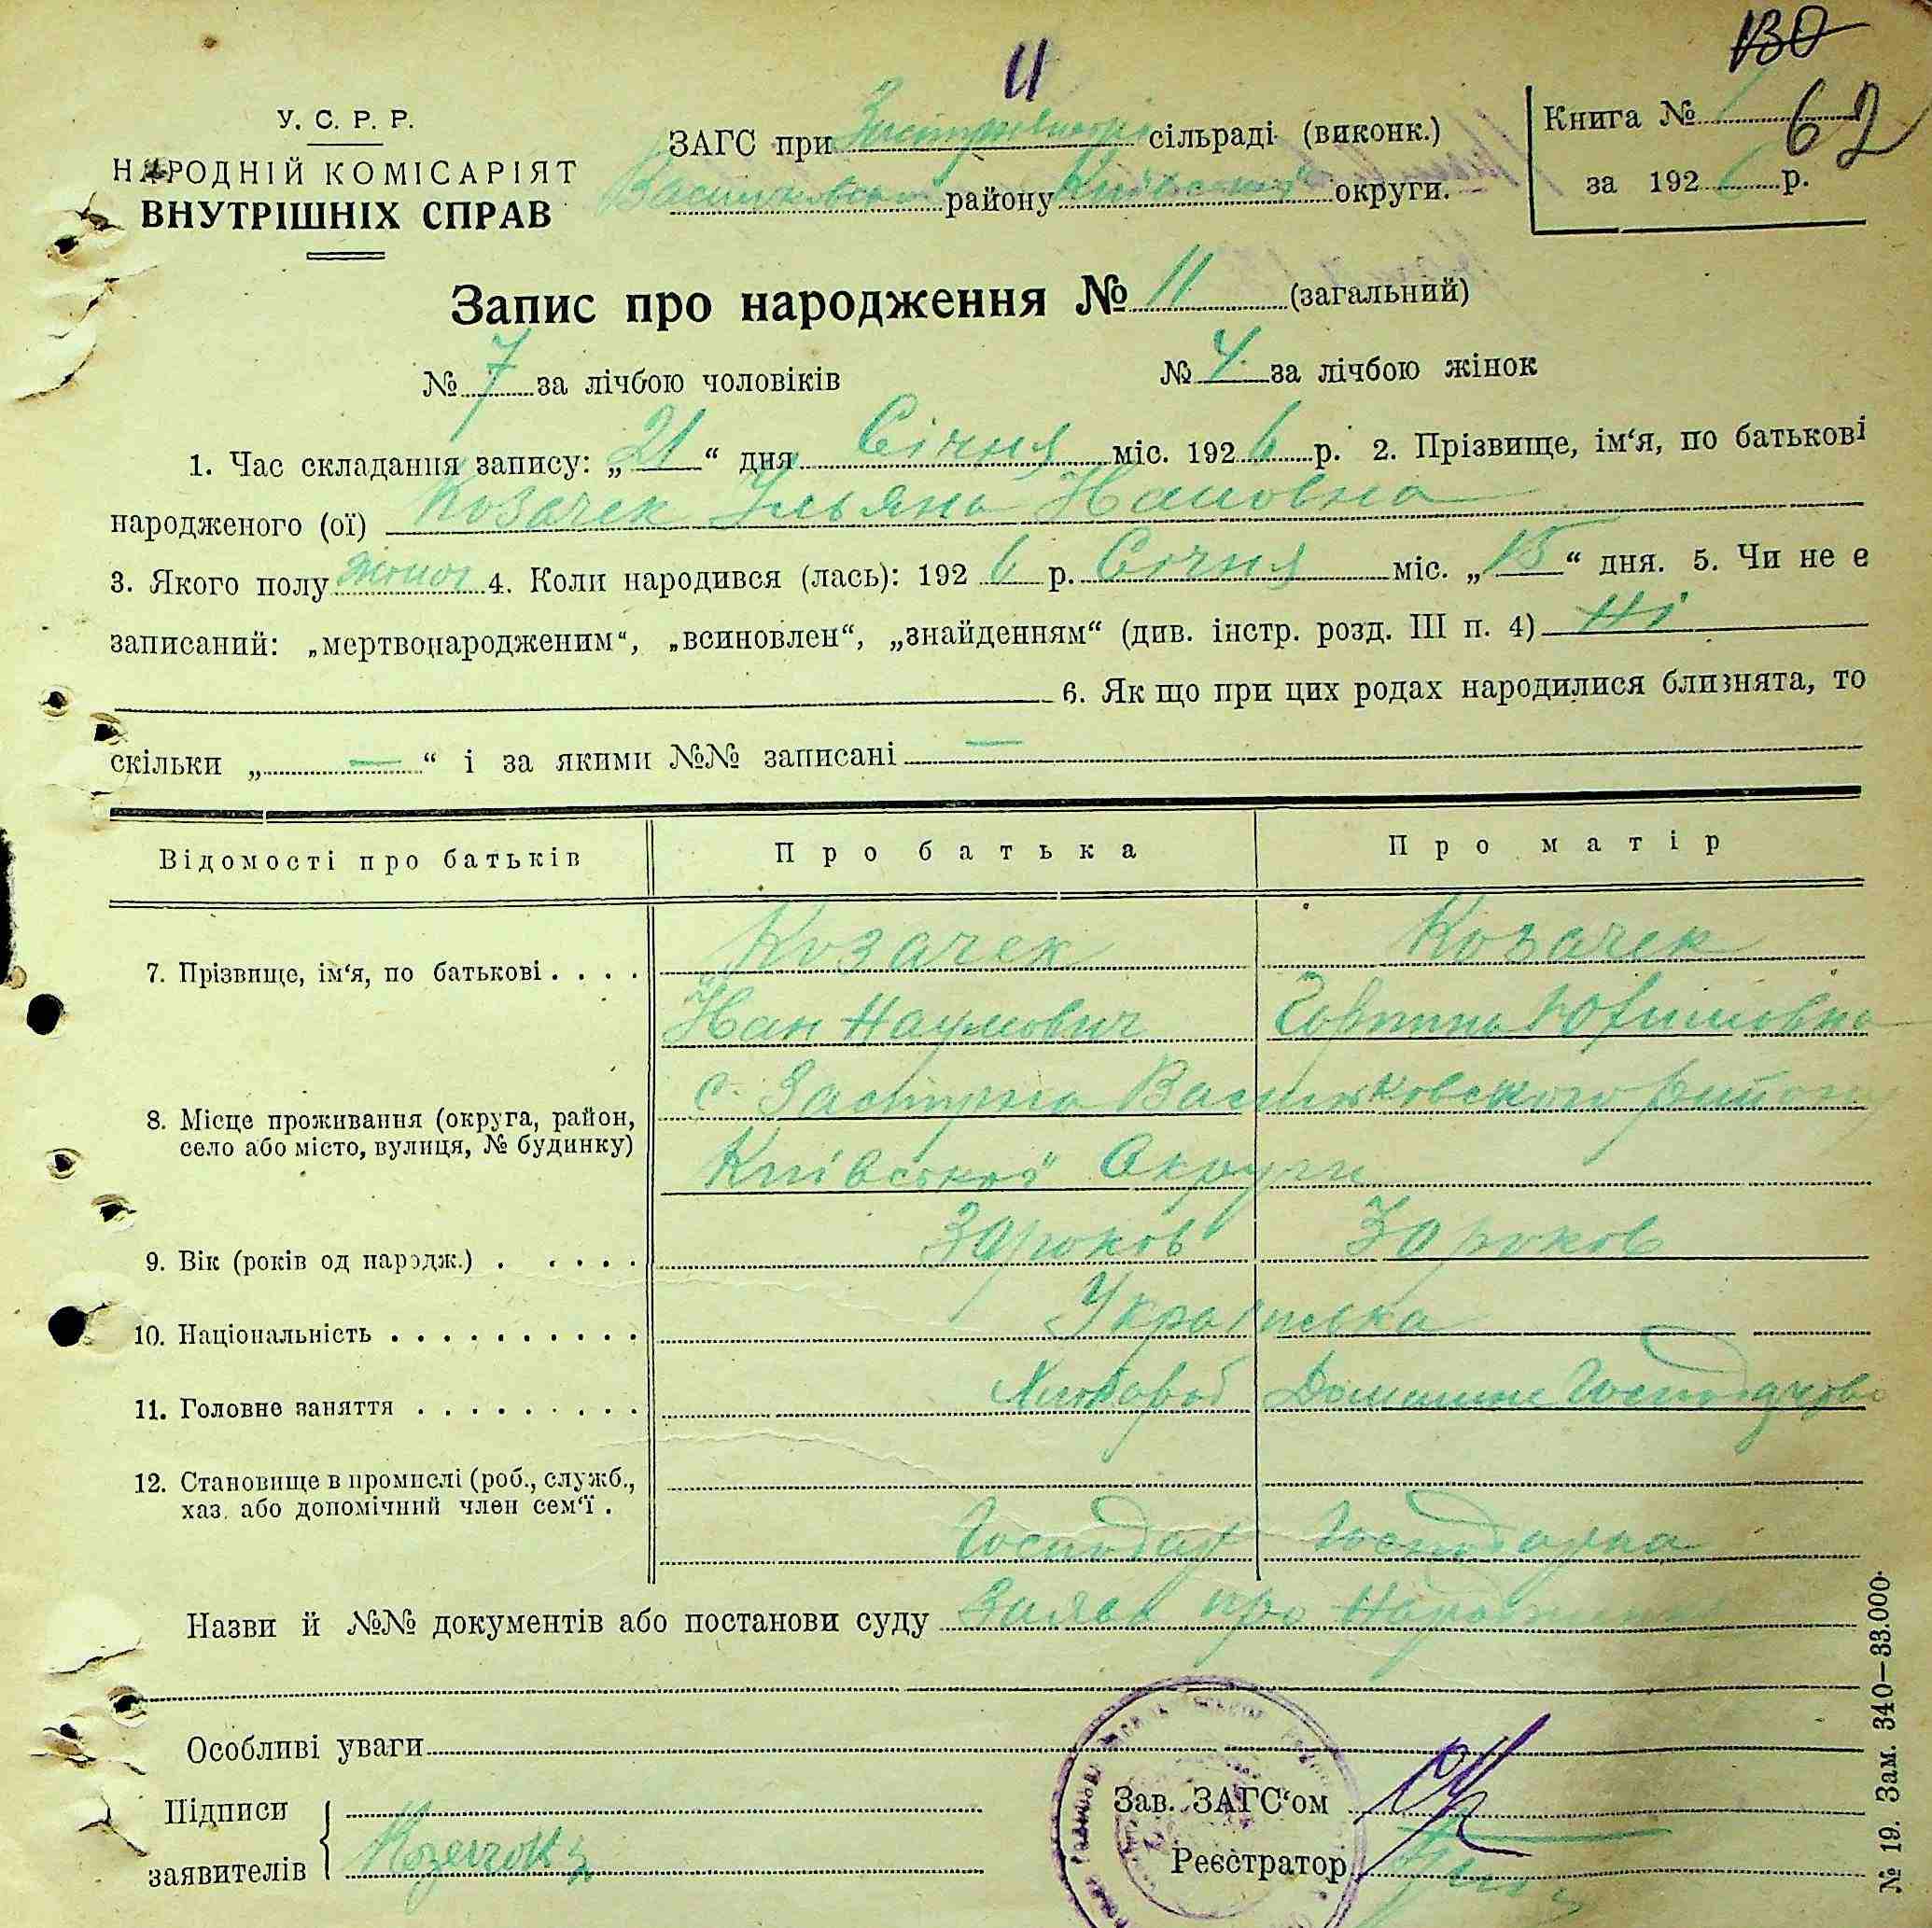 130
11
62
У. С. Р. Р.
НАРОДНІЙ КОМІСАРІЯТ
ВНУТРІШНІХ СПРАВ
ЗАГС при сільраді (виконк.)
Васильковськ району Київської округи.
Книга №
за 1926 р.
Запис про народження № 11 (загальний)
№ 7 за лічбою чоловіків № 4 за лічбою жінок
1. Час складання запису: „21“ дня Січня міс. 1926 р. 2. Прізвище, ім‘я, по батькові
народженого (ої) Козачек Ульяна Йановна
3. Якого полу жіноч 4. Коли народився (лась): 1926 р. Січня міс. „15“ дня. 5. Чи не є
записаний: „мертвонародженим“, „всиновлен“, „знайденням“ (див. інстр. розд. III п. 4) Ні
6. Як що при цих родах народилися близнята, то
скільки „—“ і за якими №№ записані —
Відомості про батьків Про батька Про матір
7. Прізвище, ім‘я, по батькові . . . . Козачек Козачек
Йан Наумович Горпина Юхимовна
8. Місце проживання (округа, район, село або місто, вулиця, № будинку) с. Застугна Васильковского району
Київської Округи
9. Вік (років од народж.) . . . . . 30 роков 30 роков
10. Національність . . . . . . . . . . Українська
11. Головне заняття . . . . . . . . . Хлібороб Домашне Господарово
12. Становище в промислі (роб., служб.,
хаз. або допомічний член сем‘ї .
Господар Господарка
Назви й №№ документів або постанови суду Заява про Народження
Особливі уваги
Підписи
заявителів
Козачок
Зав. ЗАГС‘ом
Реєстратор
№ 19. Зам. 340—33.000.